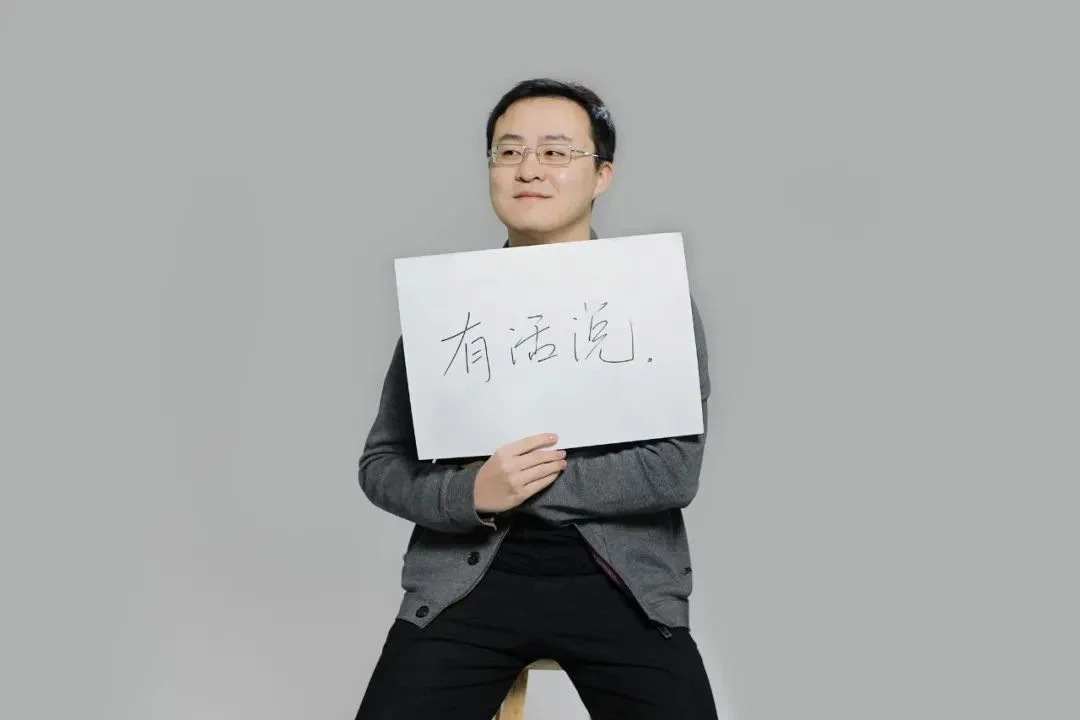 有话说.